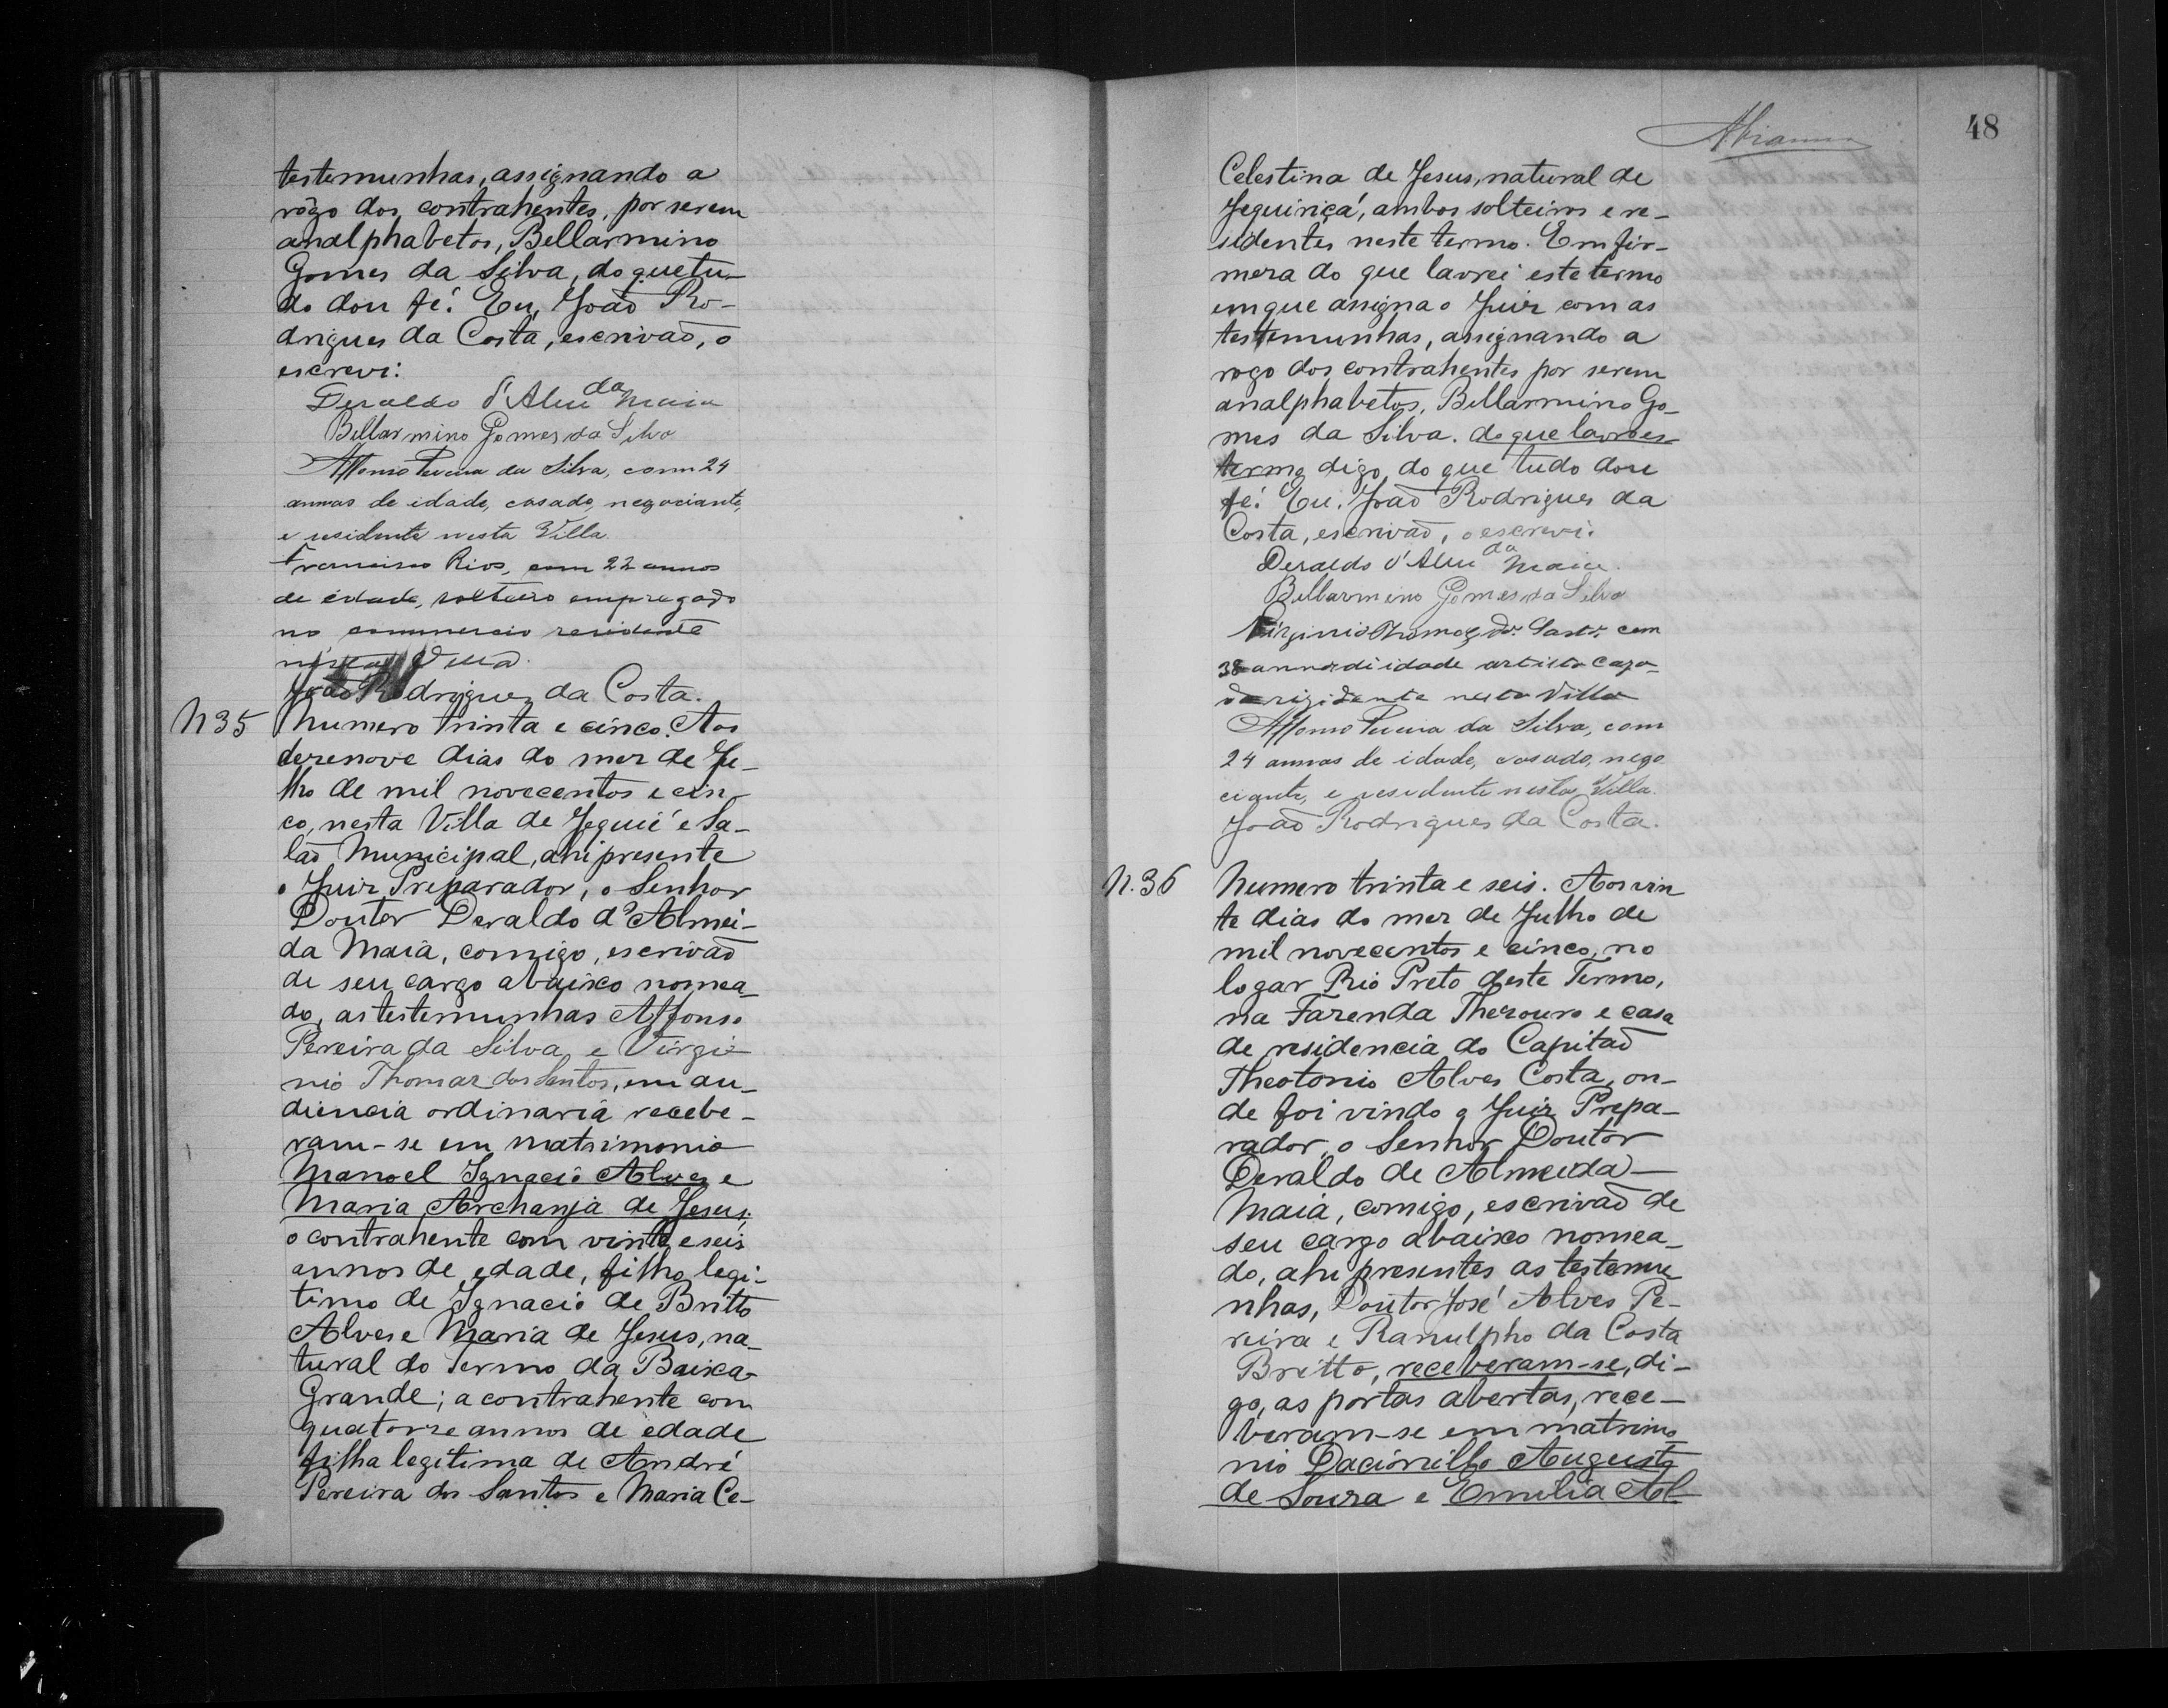 testemunhas, assignando a
rôgo dos contrahentes, por serem
analphabetos, Bellarmino
Gomes da Silva, do que tu-
do dou fé. Eu, João Ro-
drigues da Costa, escrivão, o
escrevi.
Deraldo d'Alm.da Maia
Bellarmino Gomes da Silva
Affonso Pereira da Silva, com 24
annos de idade, casado, negociante,
e residente nesta Villa.
Francisco Rios, com 22 annos
de idade, solteiro empregado
no commercio residente
nesta Villa.
João Rodrigues da Costa.
N 35
Numero trinta e cinco. Aos
dezenove dias do mez de Ju-
lho de mil novecentos e cin-
co, nesta Villa de Jequié e Sa-
lão Municipal, ahi presente
o Juiz Preparador, o Senhor
Doutor Deraldo d'Almei-
da Maia, comigo, escrivão
de seu cargo abaixo nomea-
do, as testemunhas Affonso
Pereira da Silva e Virgi-
nio Thomaz dos Santos, em au-
diencia ordinaria recebe-
ram-se em matrimonio
Manoel Ignacio Alves e
Maria Archanja de Jesus;
o contrahente com vinte e seis
annos de edade, filho legi-
timo de Ignacio de Britto
Alves e Maria de Jesus, na-
tural do Termo da Baixa-
Grande; a contrahente com
quatorze annos de edade
filha legitima de André
Pereira dos Santos e Maria Ce-
48
Celestina de Jesus, natural de
Jequiriçá, ambos solteiros e re-
sidentes neste termo. Em fir-
meza do que lavrei este termo
em que assigna o Juiz com as
testemunhas, assignando a
rogo dos contrahentes por serem
analphabetos, Bellarmino Go-
mes da Silva. do que lavrei
termo digo, do que tudo dou
fé. Eu, João Rodrigues da
Costa, escrivão, o escrevi.
Deraldo d'Alm.da Maia.
Bellarmino Gomes da Silva
Virginio Thomaz dos Santos com
38 annos di idade artista caza-
do rizidente nesta Villa
Affonso Pereira da Silva, com
24 annos de idade, casado, nego
ciante, e residente nesta Villa.
João Rodrigues da Costa.
N. 36
Numero trinta e seis. Aos vin
te dias do mez de Julho de
mil novecentos e cinco, no
logar Rio Preto deste Termo,
na Fazenda Thezouro e casa
de residencia do Capitão
Theotonio Alves Costa, on-
de foi vindo o Juiz Prepa-
rador, o Senhor Doutor
Deraldo de Almeida
Maia, comigo, escrivão de
seu cargo abaixo nomea-
do, ahi presentes as testemu
nhas, Doutor José Alves Pe-
reira e Ranulpho da Costa
Britto, receberam-se, di-
go, as portas abertas, rece-
beram-se em matrimo
nio Augusto
de Souza e Emilia Al-